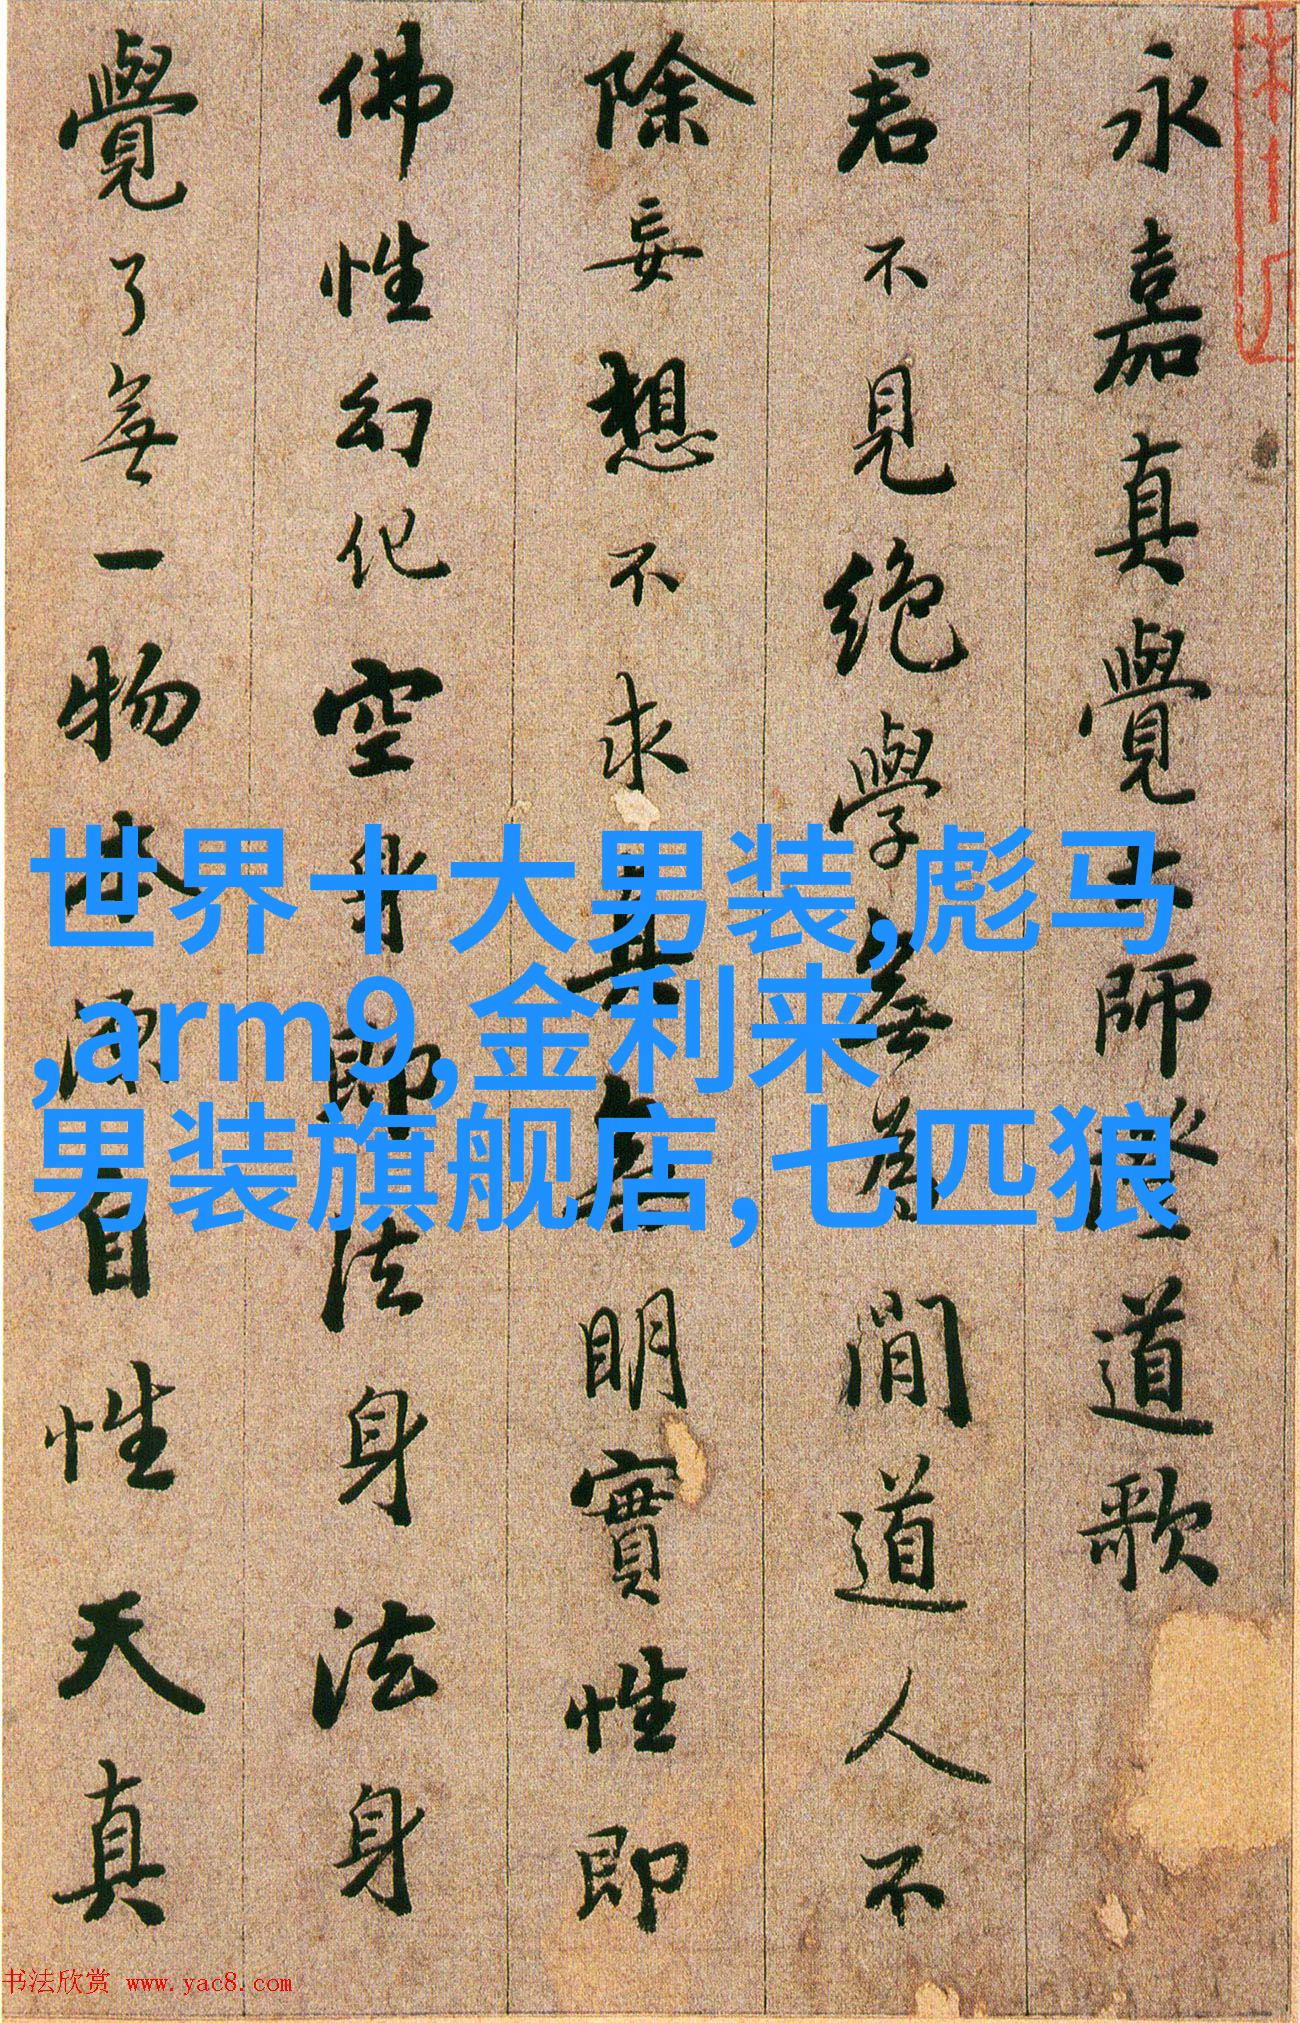 永嘉真覺大師證道歌
君不見絶學無為閒道人不
除妄想不求真無明實性即
佛性幻化空身即法身法身
覺了無一物本源自性天真
世界十大男装,彪马
,arm9,金利来
男装旗舰店, 七匹狼
书法欣赏 www.yac8.com